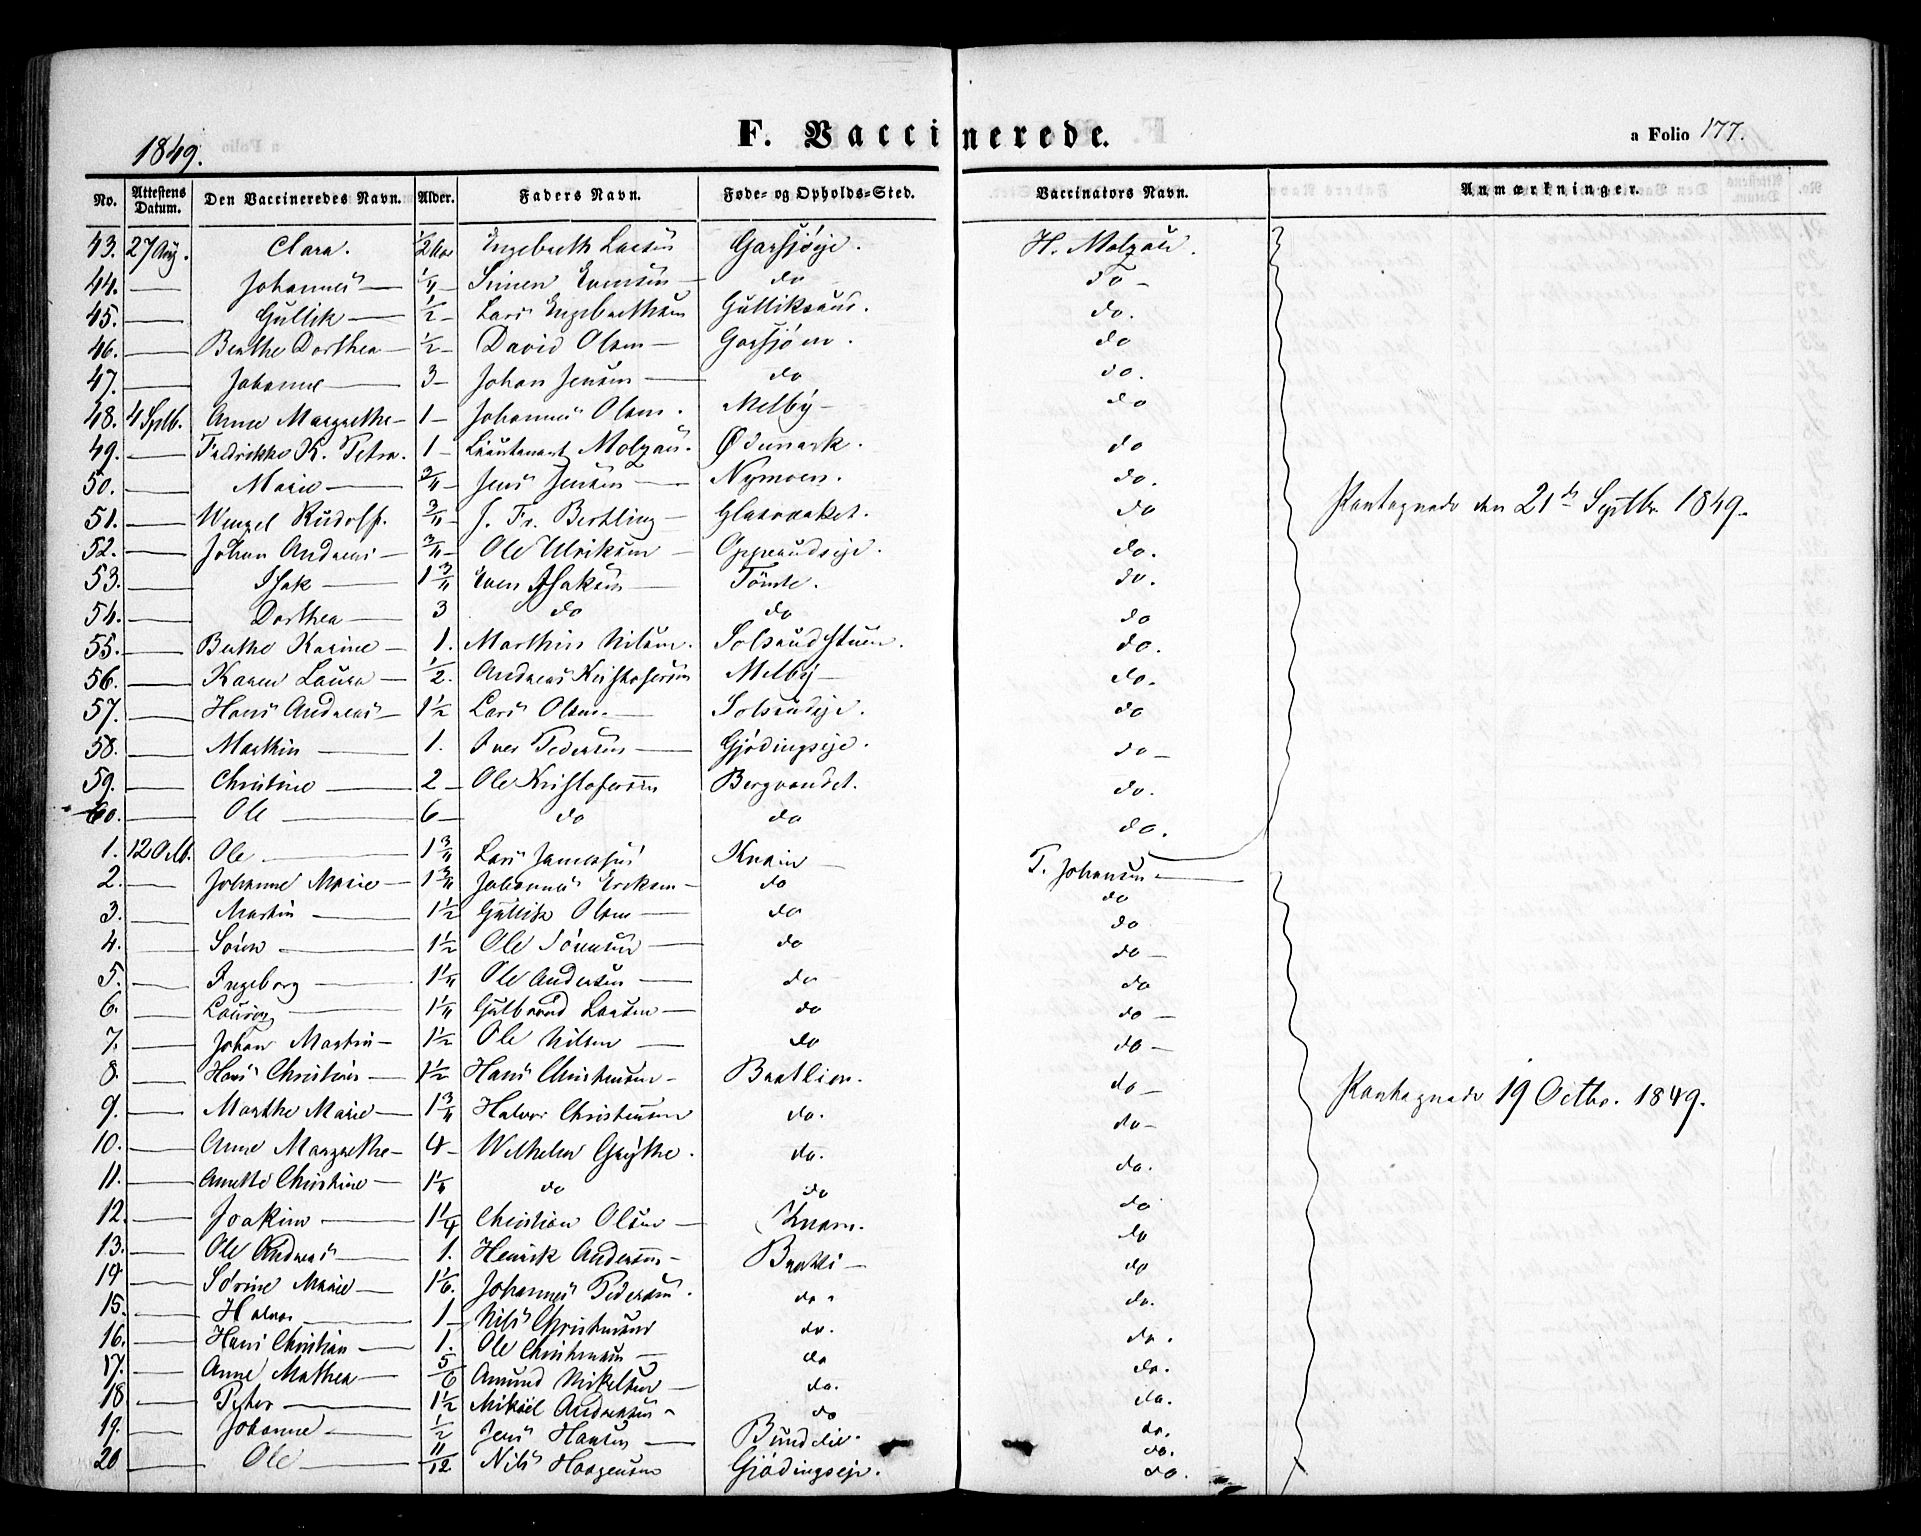 1849.
F. Vaccinerede.
a Folio 177.
No. Attestens Datum. Den Vaccineredes Navn. Alder. Faders Navn. Føde- og Opholds-Sted. Vaccinators Navn. Anmærkninger.
43. 27 Aug. Clara. 1/2 Aar Engebreth Larsen Garsjøeje. H. Molzau.
44. Johannes 1/4 Simen Evensen do do
45. Gullik 1/2 Lars Engebrethsen Gulliksrud. do.
46. Berthe Dorthea 1/2 David Olsen Garsjøen. do
47. Johanne 3 Johan Jensen do do.
48. 4 Septb. Anne Margrethe 1 Johannes Olsen. Melby do
49. Fredrikke K. Petra. 1 Lieutenant Molzau. Ødemark. do
50. Marie 3/4 Jens Jensen Nymoen. do.
51. Wenzel Rudolf. 3/4 J. Fr. Bertling Glasværket. do Revaccinerede den 21de Septbr. 1849.
52. Johan Andreas 3/4 Ole Ulriksen Opsundeje. do.
53. Isak 1 3/4 Even Isaksen Tömte. do.
54. Dorthea 3 do do do
55. Berthe Karine 1. Marthin Nilsen. Solsrudstuen. do.
56. Karen Laura 1/2. Andreas Kristofersen Melby do.
57. Hans Andreas 1 1/2 Lars Olsen Solsrudeje. do
58. Marthin 1. Iver Pedersen Gjødingseje. do
59. Christine 2 Ole Kristofersen Bergvandet. do.
60. Ole 6 do do do.
1. 12 Octb. Ole 1 3/4 Lars Knain T. Johansen
2. Johanne Marie 1 3/4 Johannes Eriksen do do
3. Martin 1 1/2 Gullik Olsen do do
4. Sören 1 1/2 Ole Sörensen do do
5. Ingeborg 1 1/4 Ole Andersen do do
6. Lauriz 1 1/4 Gulbrand Larsen do do
7. Johan Martin 1 1/2 Ole Nilsen do do
8. Hans Christian 1 1/2 Hans Christensen Braatlien. do
9. Marthe Marie 1 3/4 Halvor Christensen do. do Revaccinerede 19 Octbr. 1849.
10. Anne Margrethe 4 Wilhelm Grythe. do. do.
11. Anette Christine 1/4 do do do
12. Joakim 1 1/4 Christian Olsen Knain. do
13. Ole Andreas 1. Henrik Andersen Braatli do
14 Sörine Marie 1 1/6. Johannes Pedersen. do do.
15. Halvor 1 Nils Christensen do. do.
16. Hans Christian 1. Ole Christensen do do.
17. Anne Mathea 5/6 Amund Mikelsen do. do.
18 Peter 1 1/2 Mikael Andreasen do do.
19. Johanne 1/2 Jens Hansen Bundlie. do.
20 Ole 11/12 Nils Haagensen Gjödingseje. do.